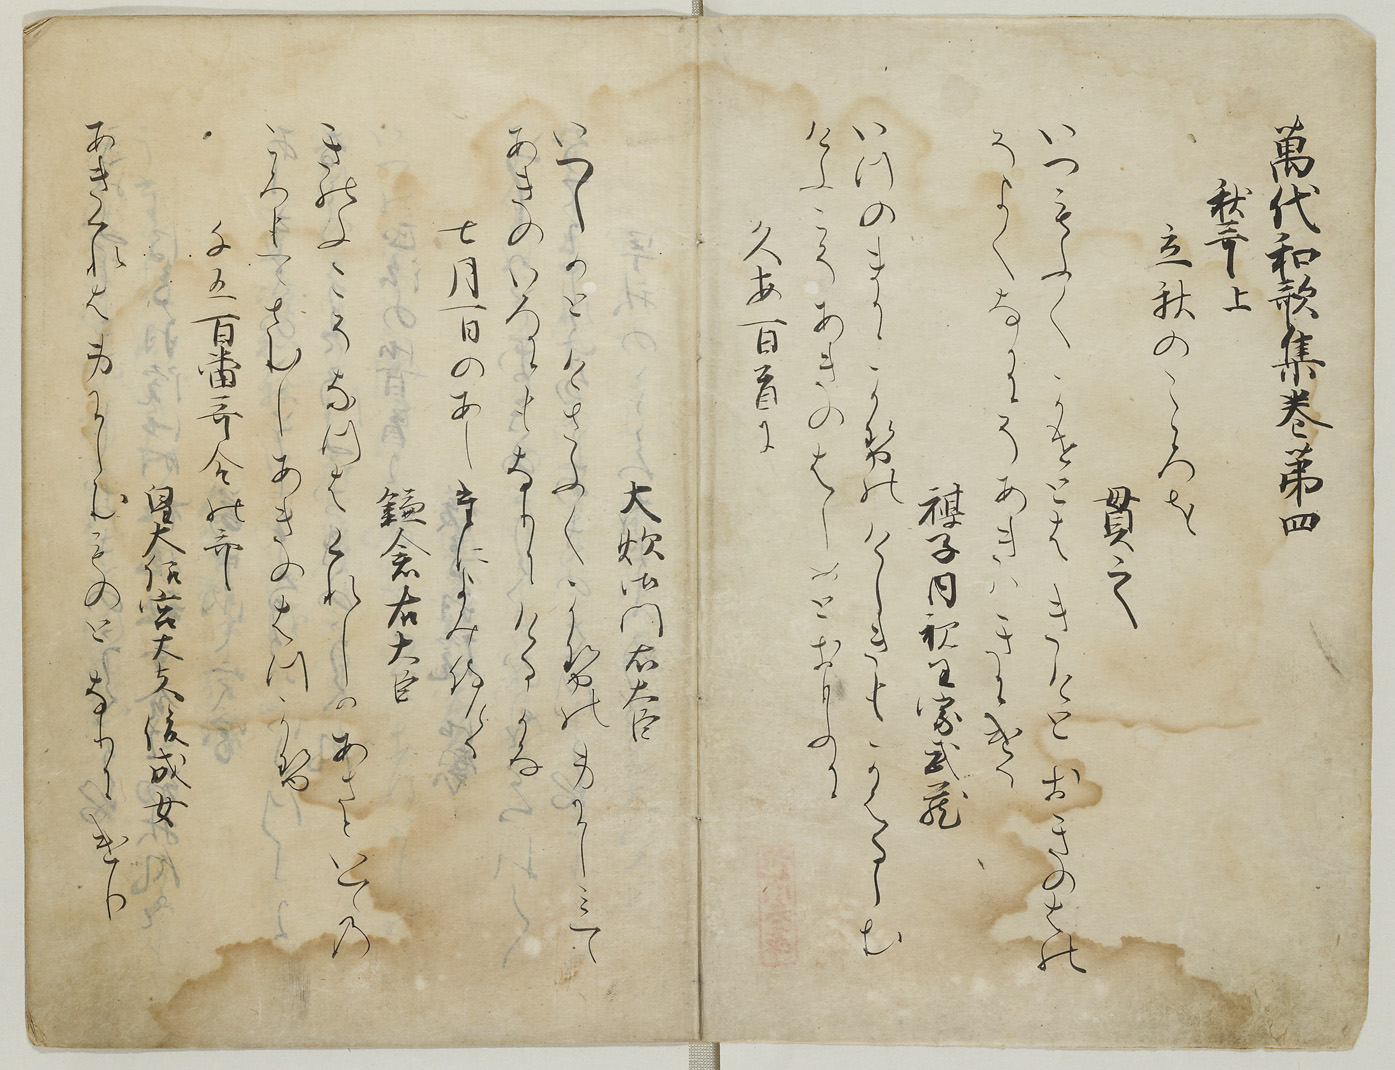 萬代和歌集巻第四
秋哥上
立秋のこゝろを
貫之
いつもふくかせとはきけとおきのはの
そよくなにそあきはきにける
禖子内親王家武蔵
いつのまにかせのけしきもかはるらむ
けふこそあきのはしめとおもふに
久安百首に
大炊御門右大臣
いつしかとけさふくかせの身にしみて
あきのいろにもなりにけるかな
七月一日のあしたによみ侍ける
鎌倉右大臣
きのふこそなつはくれしかあさといての
ころもてさむしあきのはつかせ
千五百番哥合の哥
皇太后宮大夫俊成女
あきくれは身にしむものとなりにけり